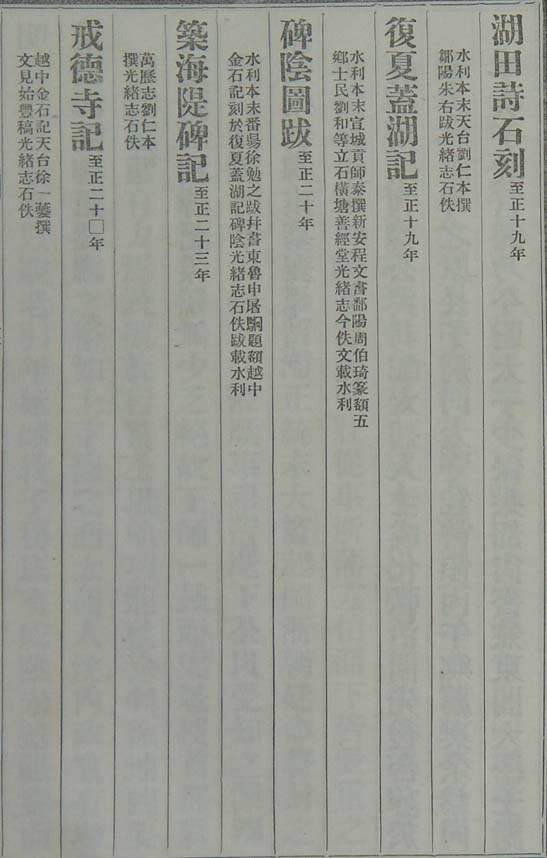 湖田詩石刻至正十九年
水利本末天台劉仁本撰
鄒陽朱右跋光緒志石佚
復夏蓋湖記至正十九年
水利本末宣城貢師泰撰新安程文書鄱陽周伯琦篆額五
鄉士民劉和等立石橫塘善經堂光緒志今佚文載水利
碑陰圖跋至正二十年
水利本末番昜徐勉之跋幷書東魯申屠駉題額越中
金石記刻於復夏蓋湖記碑陰光緒志石佚跋載水利
築海隄碑記至正二十三年
萬歷志劉仁本
撰光緒志石佚
戒德寺記至正二十〇年
越中金石記天台徐一夔撰
文見始豐稿光緒志石佚